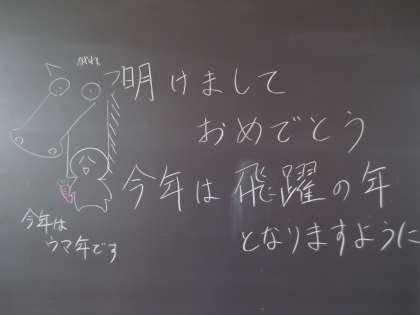 明けまして
おめでとう
今年は飛躍の年
となりますように
今年は
ウマ年です